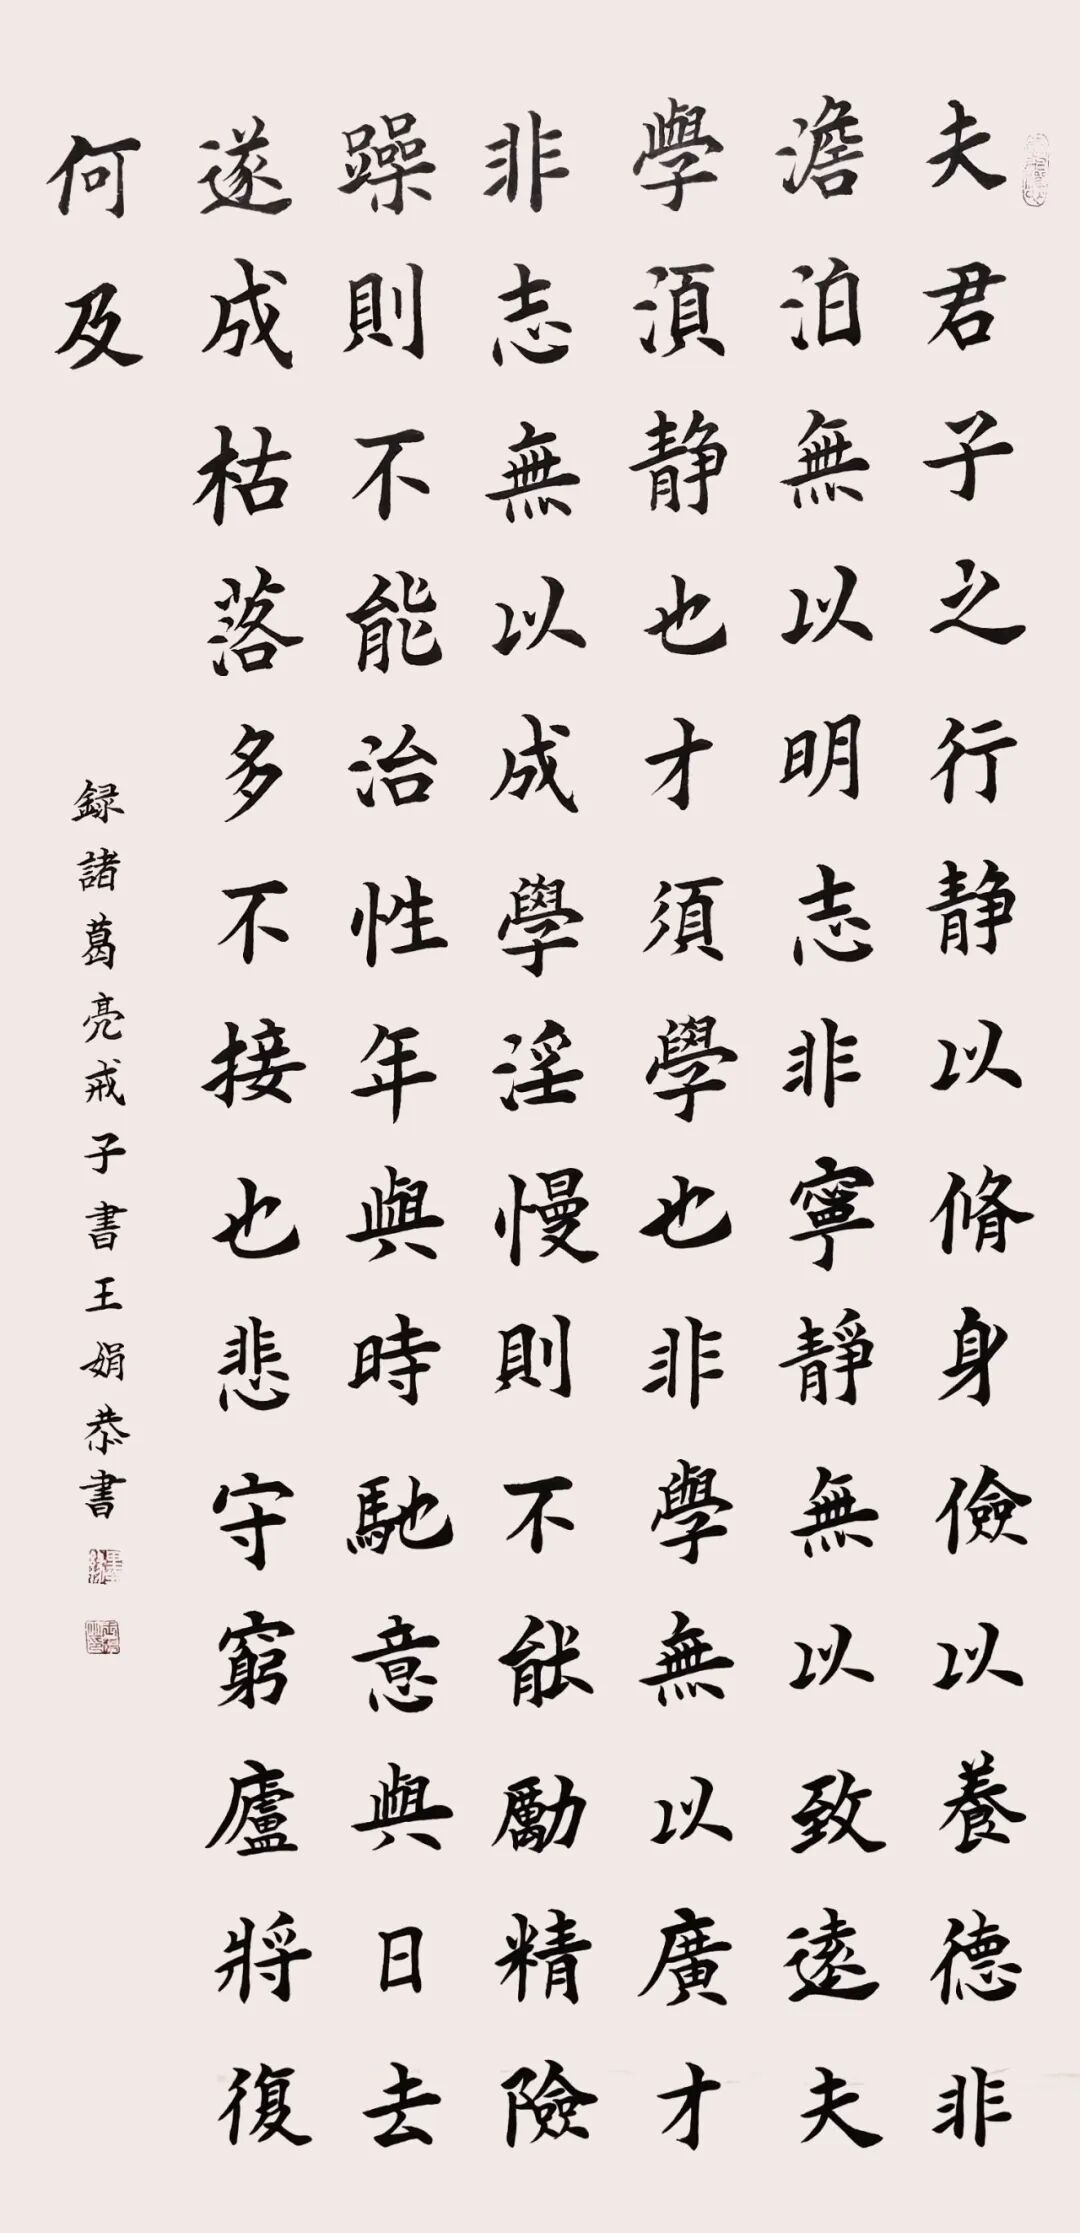 夫君子之行静以脩身儉以養德非
澹泊無以明志非寧靜無以致遠夫
學湏静也才須學也非學無以廣才
非志無以成學淫慢則不能勵精險
躁則不能治性年與時馳意與日去
遂成枯落多不接也悲守窮廬將復
何及
録諸葛亮戒子書王娟恭書